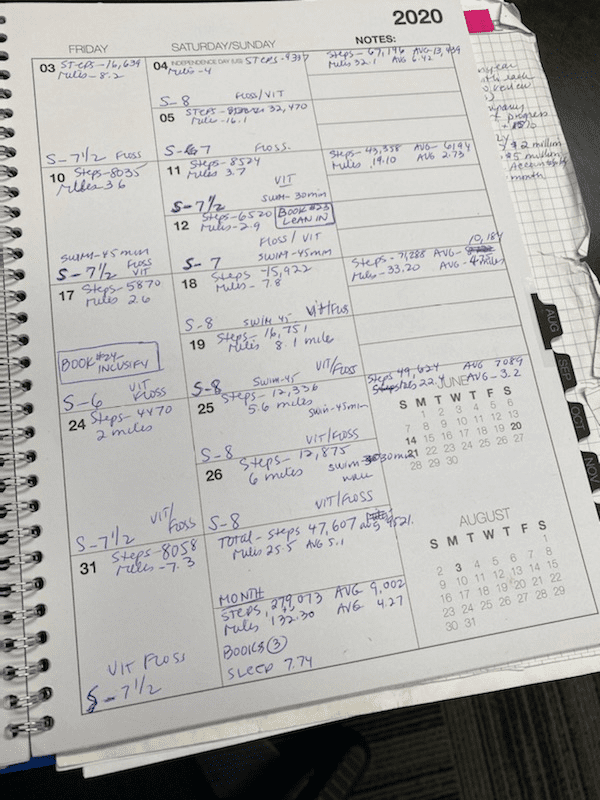 2020
FRIDAY
SATURDAY/SUNDAY
NOTES:
03 STEPS-16,634
Miles-8.2
S-7 1/2 FLOSS
04 INDEPENDENCE DAY (US) STEPS-9337
Miles-4
S-8 FLOSS/VIT
05 STEPS- 32,470
Mile-16.1
S-7 FLOSS.
Steps-67,196 AVG-13,439
Miles 32.1 AVG 6.42
10 Steps-8035
Miles 3.6
SWIM-45 min
S-7 1/2 FLOSS
VIT
11 Steps-8524
Miles 3.7
VIT
S-7 1/2 SWIM-30min
12 Steps-6520
Miles-2.9
BOOK #23
LEAN IN
FLOSS/VIT
S-7 SWIM-45min
Steps-43,358 AVG-6194
Miles 19.10 AVG 2.73
17 Steps-5870
Miles 2.6
BOOK #24-
INCUSIFY
S-6 VIT
FLOSS
18 Steps-15,922
Miles-7.8
S-8 SWIM 45 VIT/FLOS
19 Steps-16,751
Miles 8.1 mile
VIT/FLOSS
S-8 SWIM-45
10,184
Steps-71,288 AVG-
Miles-33.20 AVG-
24 Steps-4470
2 miles
VIT/
S-7 1/2 FLOSS
25 Steps-12,336
5.6 miles
SWIM-45min
S-8 VIT/FLOSS
26 Steps-12,875
6 miles SWIM-30min
VIT/FLOSS
S-8
Steps 49,624 AVG 7089
22. AVG-3.2
31 Steps-8058
Miles-7.3
VIT FLOSS
S-7 1/2
TOTAL-STEPS 47,607 avg 9521.
Miles 25.5 AVG 5.1
MONTH
STEPS, 279,073 AVG 9,002
Miles 132.30 AVG 4.27
BOOKS (3)
SLEEP 7.74
JUNE
S M T W T F S
1 2 3 4 5 6
7 8 9 10 11 12 13
14 15 16 17 18 19 20
21 22 23 24 25 26 27
28 29 30
AUGUST
S M T W T F S
1
2 3 4 5 6 7 8
9 10 11 12 13 14 15
16 17 18 19 20 21 22
23 24 25 26 27 28 29
30 31
AUG
SEP
OCT
NOV
review
progress
$2 million
$5 million
month